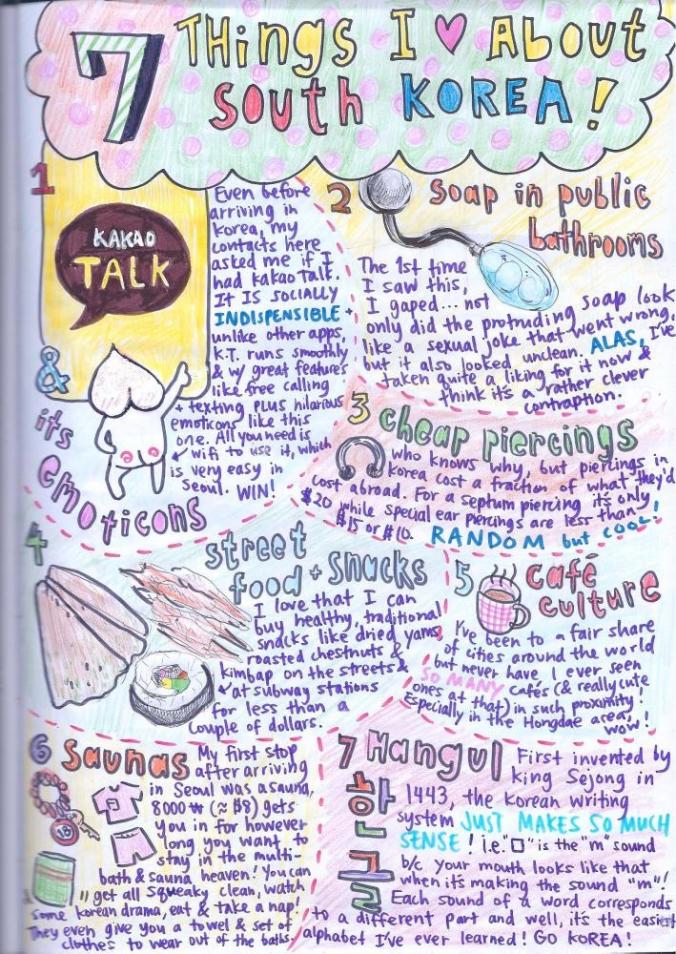 7 THings I ♥ About
south KOREA!
1
KAKAO
TALK
& its emoticons
Even before
arriving in
Korea, my
contacts here
asked me if I
had Kakao Talk.
IT IS SOCIALLY
INDISPENSIBLE +
unlike other apps,
K.T. runs smoothly
& w/ great features
like free calling
+ texting PLUS hilarious
emoticons like this
one. All you need is
wifi to use it, which
is very easy in
Seoul. WIN!
2 soap in public
bathrooms
The 1st time
I saw this,
I gaped... not
only did the protruding soap look
like a sexual joke that went wrong,
but it also looked unclean. ALAS, I've
taken quite a liking for it now &
think it's a rather clever
contraption.
3 cheap piercings
who knows why, but piercings in
Korea cost a fraction of what they'd
cost abroad. For a septum piercing it's only
$20 while special ear piercings are less than
$15 or $10. RANDOM but cool!
4 street
food + snacks
I love that I can
buy healthy, traditional
snacks like dried yams,
roasted chestnuts &
kimbap on the streets &
at subway stations
for less than a
couple of dollars.
5 café
culture
I've been to a fair share
of cities around the world
but never have I ever seen
SO MANY cafés (& really cute
ones at that) in such proximity!
Especially in the Hongdae area,
wow!
6 Saunas
My first stop
after arriving
in Seoul was a sauna.
8000 ₩ (≈ $8) gets
you in for however
long you want to
stay in the multi-
bath & sauna heaven! You can
get all squeaky clean, watch
some korean drama, eat & take a nap!
They even give you a towel & set of
clothes to wear out of the baths.
18
7 Hangul
한글
First invented by
King Sejong in
1443, the Korean writing
system JUST MAKES SO MUCH
SENSE! i.e. "ㅁ" is the "m" sound
b/c your mouth looks like that
when it's making the sound "m"!
Each sound of a word corresponds
to a different part and well, it's the easiest
alphabet I've ever learned! GO KOREA!